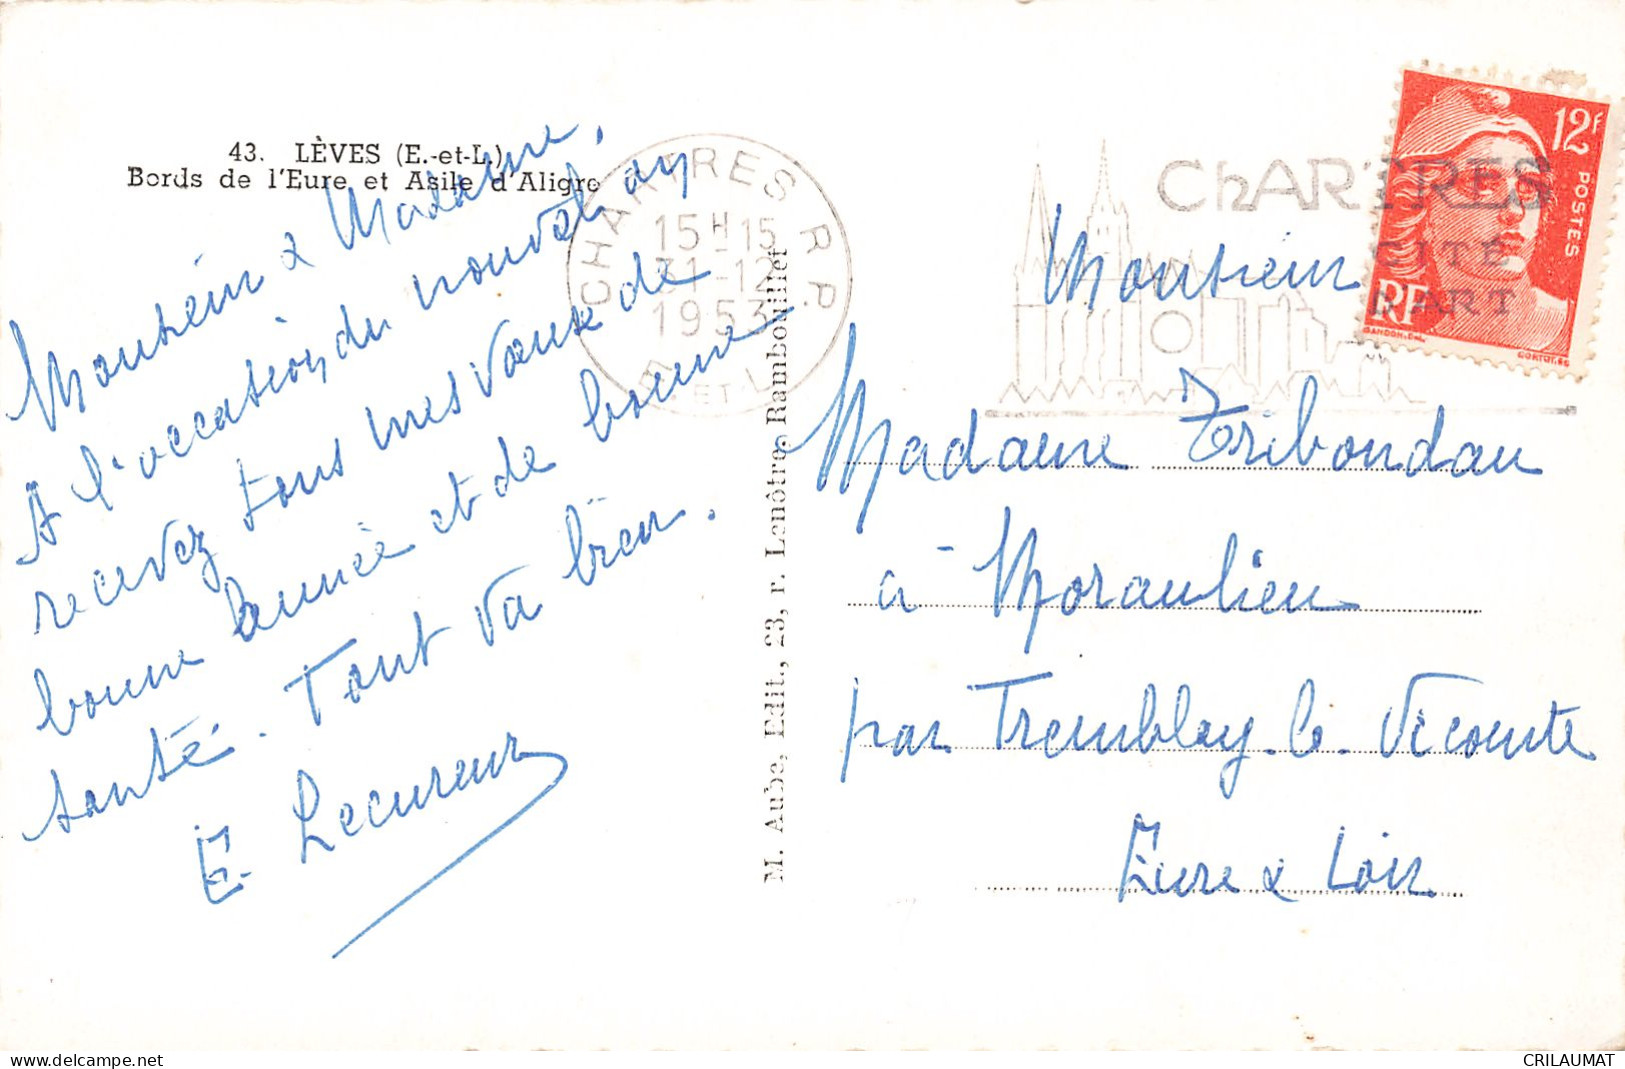 43. LÈVES (E.-et-L.)
Bords de l'Eure et Asile d'Aligre
Monsieur & Madame,
A l'occasion du nouvel an
recevez tous mes vœux de
bonne année et de bonne
santé. Tout va bien.
E. Lecureur
M. Aube, Edit., 23, r. Lenôtre, Rambouillet
CHARTRES R.P.
15H15
31-12
1953
ET L
ChARTRES
CITÉ
D'ART
12F
POSTES
RF
GANDON.DEL.
CORTOT.SC
Monsieur
Madame Tribondau
à Moraulieu
par Tremblay-le-Vicomte
Eure & Loir
delcampe.net
CRILAUMAT